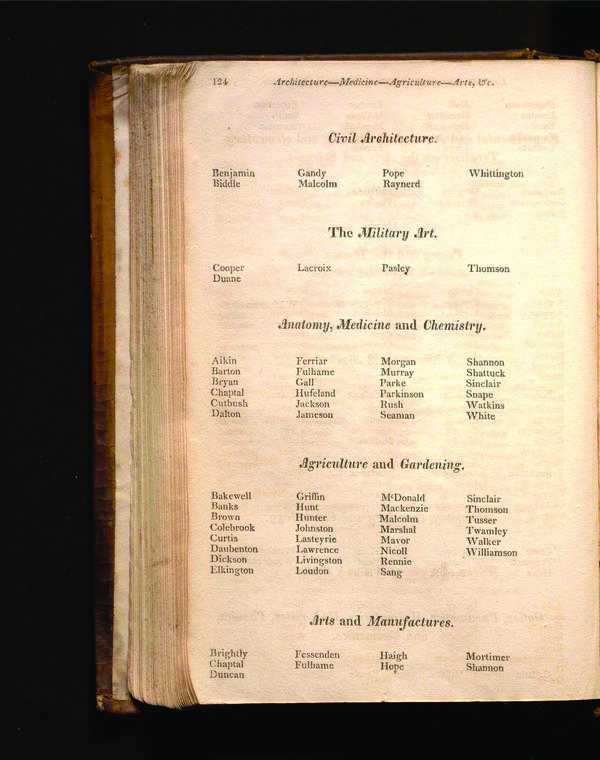 124 Architecture—Medicine—Agriculture—Arts, &c.
Civil Architecture.
Benjamin Gandy Pope Whittington
Biddle Malcolm Raynerd
The Military Art.
Cooper Lacroix Pasley Thomson
Duane
Anatomy, Medicine and Chemistry.
Aikin Ferriar Morgan Shannon
Barton Fulhame Murray Shattuck
Bryan Gall Parke Sinclair
Chaptal Hufeland Parkinson Snape
Cutbush Jackson Rush Watkins
Dalton Jameson Seaman White
Agriculture and Gardening.
Bakewell Griffin McDonald Sinclair
Banks Hunt Mackenzie Thomson
Brown Hunter Malcolm Tusser
Colebrook Johnston Marshal Twamley
Curtis Lasteyrie Mavor Walker
Daubenton Lawrence Nicoll Williamson
Dickson Livingston Rennie
Elkington Loudon Sang
Arts and Manufactures.
Brightly Fessenden Haigh Mortimer
Chaptal Fulhame Hope Shannon
Duncan